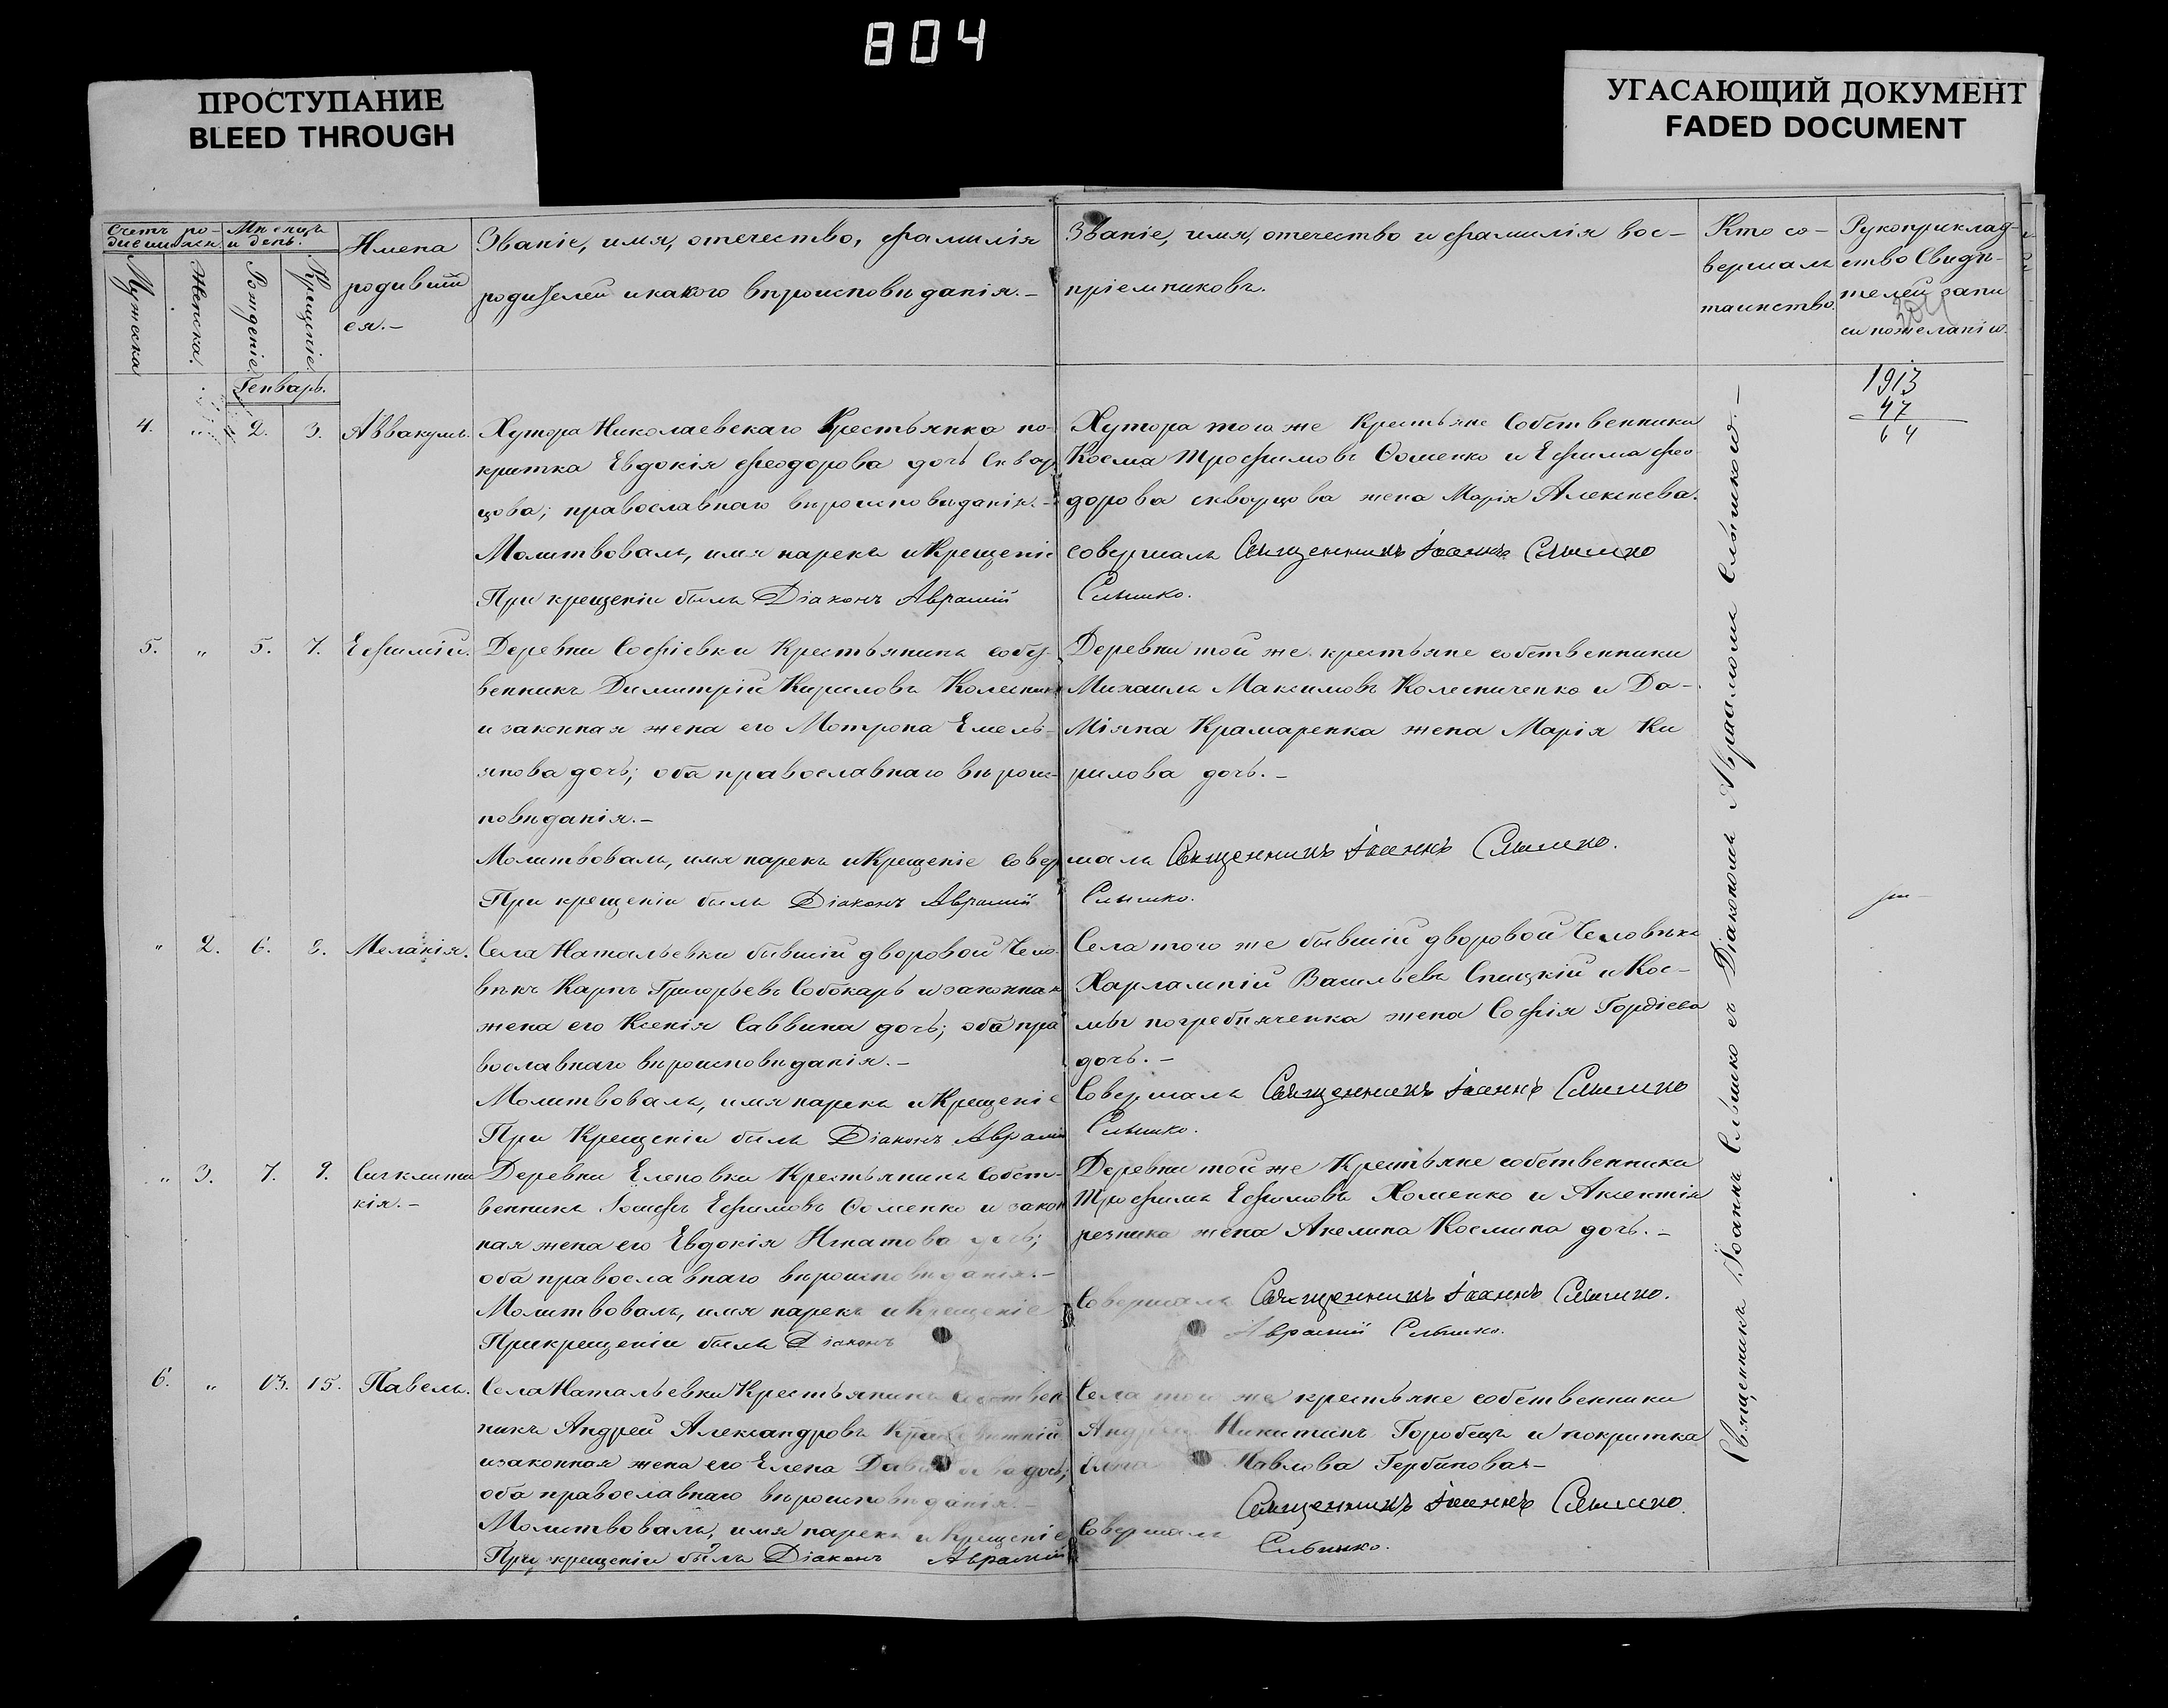 804
ПРОСТУПАНИЕ
BLEED THROUGH
УГАСАЮЩИЙ ДОКУМЕНТ
FADED DOCUMENT
Счетъ ро-
дившихся
Мѣсяцъ
и день.
Мужеска
Женска.
Рожденіе.
Крещеніе
Имена
родивших
ся.-
Званіе, имя, отечество, фамилія
родителей и какого вѣроисповѣданія.-
Званіе, имя, отечество и фамилія вос-
пріемниковъ.
Кто со-
вершалъ
таинство.
Рукоприклад-
ство Свидѣ-
телей запи
си по желанію.
Генварь.
1913
47
64
4. " 2. 3. Аввакумъ.
Хутора Николаевскаго Крестьянка по-
критка Евдокія Феодорова дочь Сквор
цова; православнаго вѣроисповѣданія.-
Молитвовалъ, имя нарекъ и Крещеніе
При крещеніи былъ Діаконъ Аврамій
Хутора того же Крестьяне Собственники
Косма Трофимовъ Фоменко и Ефима Фео
дорова скворцова жена Марія Алексѣева.
совершалъ Священникъ Іоаннъ Слышко
Слышко.
5. " 5. 7. Ефимій.
Деревни Софіевки Крестьянинъ собст
венникъ Димитрій Кириловъ Колесник
и законная жена его Мотрона Емель-
янова дочь; оба православнаго вѣроис-
повѣданія.-
Молитвовалъ, имя нарекъ и Крещеніе совер
При крещеніи былъ Діаконъ Аврамій
Деревни той же крестьяне собственники
Михаилъ Максимовъ Колесниченко и Да-
міяна Крамаренка жена Марія Ки
рилова дочь.-
шалъ Священникъ Іоаннъ Слышко.
Слышко.
" 2. 6. 8. Меланія.
Села Натальевки бывшій дворовой Чело-
вѣкъ Карпъ Григорьевъ Собокарь и законная
жена его Ксенія Саввина дочь; оба пра
вославнаго вѣроисповѣданія.-
Молитвовалъ, имя нарекъ и Крещеніе
При Крещеніи былъ Діаконъ Аврамій
Села того же бывшій дворовой Человѣкъ
Харлампій Васильевъ Спицкій и Кос-
мы погребняченка жена Софія Гордіева
дочь.-
Совершалъ Священникъ Іоаннъ Слышко
Слышко.
" 3. 7. 9. Сигклити
кія.-
Деревни Еленовки Крестьянинъ Собст-
венникъ Іосифъ Ефимовъ Фоменко и закон
ная жена его Евдокія Игнатова дочь;
оба православнаго вѣроисповѣданія.-
Молитвовалъ, имя нарекъ и Крещеніе
При крещеніи былъ Діаконъ
Деревни той же Крестьяне собственники
Трофимъ Ефимовъ Хоменко и Аксентія
резника жена Акелина Космина дочь.-
Совершалъ Священникъ Іоаннъ Слышко.
Аврамій Слышко.
6. " 13. 15. Павелъ.
Села Натальевки Крестьянинъ Собствен
никъ Андрей Александровъ
и законная жена его Елена дочь;
оба православнаго вѣроисповѣданія.-
Молитвовалъ, имя нарекъ и Крещеніе
При крещеніи былъ Діаконъ Аврамій
Села той же крестьяне собственники
Андрей Никитинъ Горобецъ и покритка
Павлова Гербиновая-
Священникъ Іоаннъ Слышко.
Совершалъ
Слышко.
Священникъ Іоаннъ Слышко съ Діакономъ Авраміемъ Слышкой.-